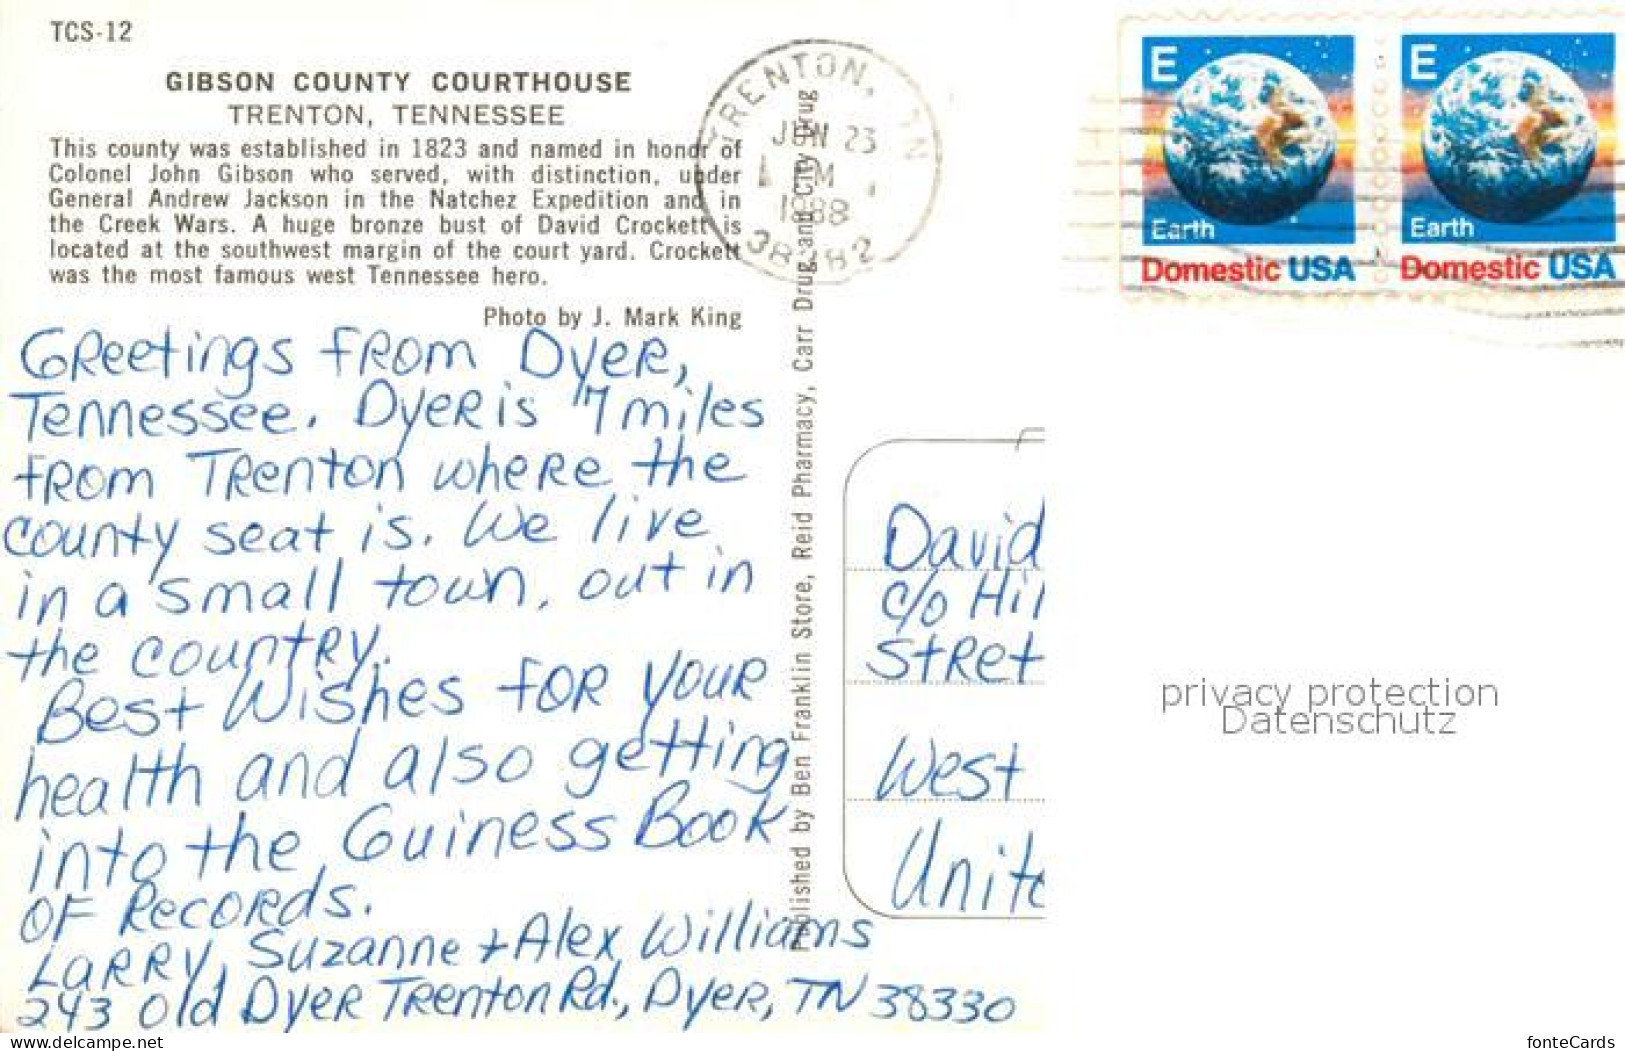 TCS-12
GIBSON COUNTY COURTHOUSE
TRENTON, TENNESSEE
This county was established in 1823 and named in honor of
Colonel John Gibson who served, with distinction, under
General Andrew Jackson in the Natchez Expedition and in
the Creek Wars. A huge bronze bust of David Crockett is
located at the southwest margin of the court yard. Crockett
was the most famous west Tennessee hero.
Photo by J. Mark King
Greetings from Dyer,
Tennessee. Dyer is 7 miles
from Trenton where the
county seat is. We live
in a small town, out in
the country.
Best Wishes for your
health and also getting
into the Guiness Book
of Records.
Larry, Suzanne + Alex Williams
243 Old Dyer Trenton Rd., Dyer, TN 38330
Published by Ben Franklin Store, Reid Pharmacy, Carr Drug, and City Drug
TRENTON, TN
JUN 23
PM
1988
38382
E
Earth
Domestic USA
E
Earth
Domestic USA
David
c/o Hil
Stret
West
Unite
privacy protection
Datenschutz
www.delcampe.net
fonteCards